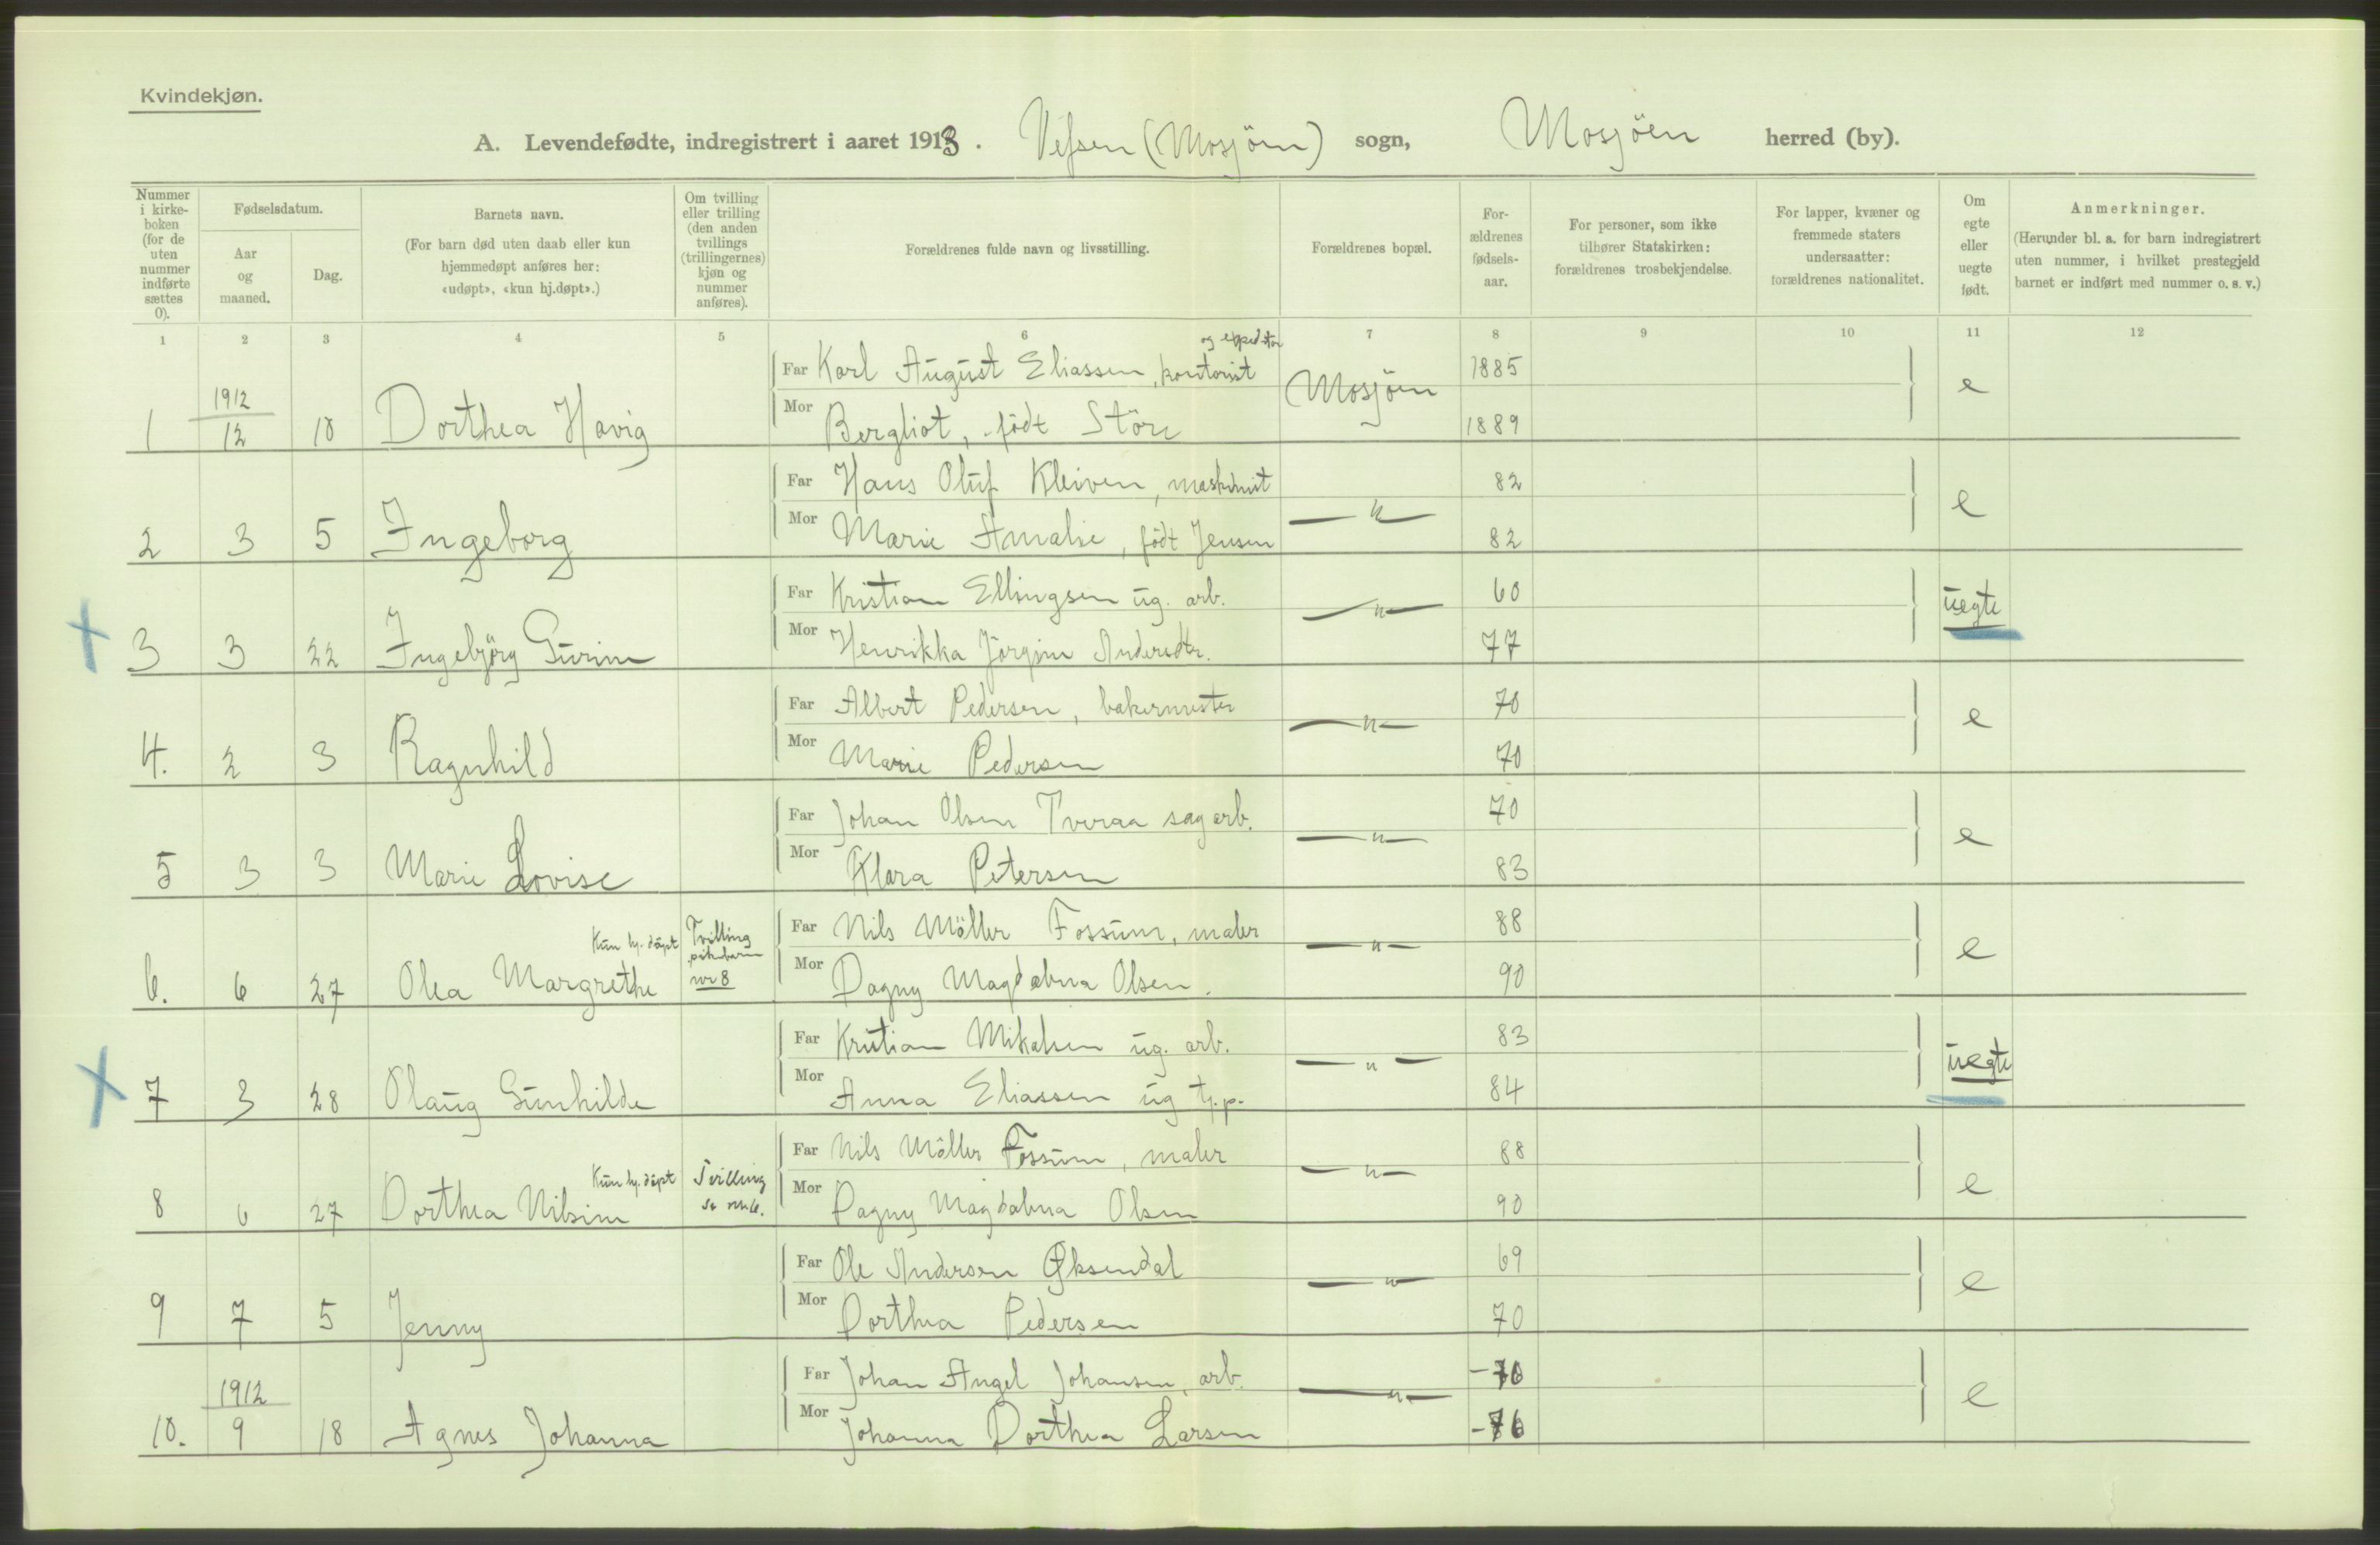 Kvindekjøn.
A. Levendefødte, indregistrert i aaret 1913. Vefsen (Mosjöen) sogn, Mosjöen herred (by).
Nummer i kirke-boken (for de uten nummer indførte sættes 0).
Fødselsdatum.
Aar og maaned.
Dag.
Barnets navn.
(For barn død uten daab eller kun hjemmedøpt anføres her: «udøpt», «kun hj.døpt».)
Om tvilling eller trilling (den anden tvillings (trillingernes) kjøn og nummer anføres).
Forældrenes fulde navn og livsstilling.
Forældrenes bopæl.
For-ældrenes fødsels-aar.
For personer, som ikke tilhører Statskirken: forældrenes trosbekjendelse.
For lapper, kvæner og fremmede staters undersaatter: forældrenes nationalitet.
Om egte eller uegte født.
Anmerkninger.
(Herunder bl. a. for barn indregistrert uten nummer, i hvilket prestegjeld barnet er indført med nummer o. s. v.)
1 2 3 4 5 6 7 8 9 10 11 12
og expeditör
Far Karl August Eliassen, kontorist Mosjöen 1885 e
1 1912 12 10 Dorthea Havig Mor Bergliot, födt Störe 1889
Far Hans Oluf Kleiven, maskinist — " — 82 e
2 3 5 Ingeborg Mor Marie Amalie, födt Jensen 82
Far Kristian Ellingsen ug. arb. — " — 60 uegte
X 3 3 22 Ingebjörg Gurine Mor Henrikka Jörgine Andersdtr. 77
Far Albert Pedersen, bakermester — " — 70 e
4. 2 3 Ragnhild Mor Marie Pedersen 70
Far Johan Olsen Tveraa sagarb. — " — 70 e
5 3 3 Marie Lovise Mor Klara Petersen 83
Far Nils Möller Fossum, maler — " — 88 e
6. 6 27 Olea Margrethe Kun hj. döpt Tvilling pikebarn nr 8 Mor Dagny Magdalena Olsen. 90
Far Kristian Mikalsen ug. arb. — " — 83 uegte
X 7 3 28 Olaug Gunhilde Mor Anna Eliassen ug tj.p. 84
Far Nils Möller Fossum, maler — " — 88 e
8 6 27 Dorthea Nilsine Kun hj. döpt Tvilling se nr. 6. Mor Dagny Magdalena Olsen 90
Far Ole Andersen Øksendal — " — 69 e
9 7 5 Jenny Mor Dorthea Pedersen 70
Far Johan Angel Johansen, arb. — " — -70 e
10. 1912 9 18 Agnes Johanna Mor Johanna Dorthea Larsen -76